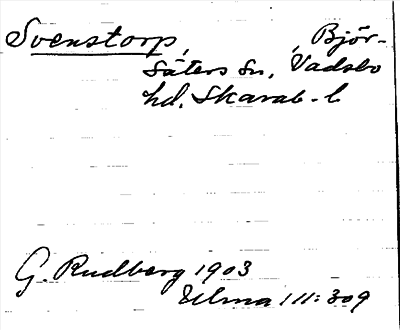 Svenstorp, , Björ-
Säters Sn, Vadsbo
hd. Skarab. l
G. Rudberg 1903
Ulma 111:309